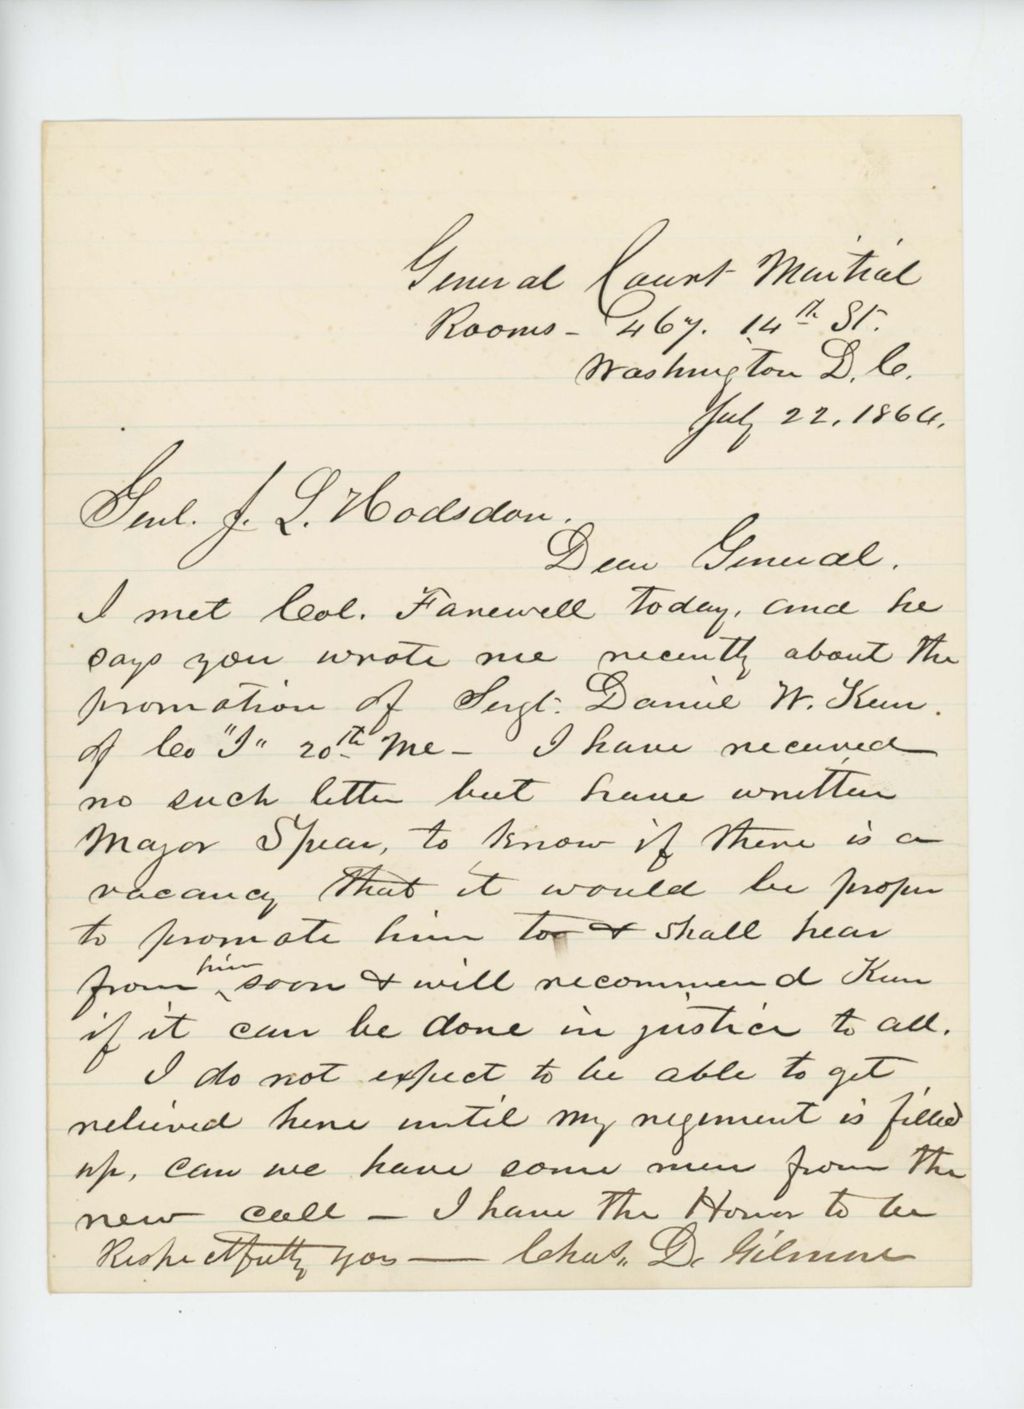 General Court Martial
Rooms - 467. 14th St.
Washington D. C.
July 22, 1864.
Genl. J. L. Hodsdon.
Dear General.
I met Col. Farewell today, and he
says you wrote me recently about the
promotion of Sergt. Daniel W. Keen.
of Co "I" 20th Me - I have received
no such letter but have written
Major Spear, to know if there is a
vacancy that it would be proper
to promote him too & shall hear
from him soon & will recommend Keen
if it can be done in justice to all.
I do not expect to be able to get
relieved here until my regiment is filled
up, can we have some men from the
new call - I have the Honor to be
Respectfully yos — Chas. D. Gilmore